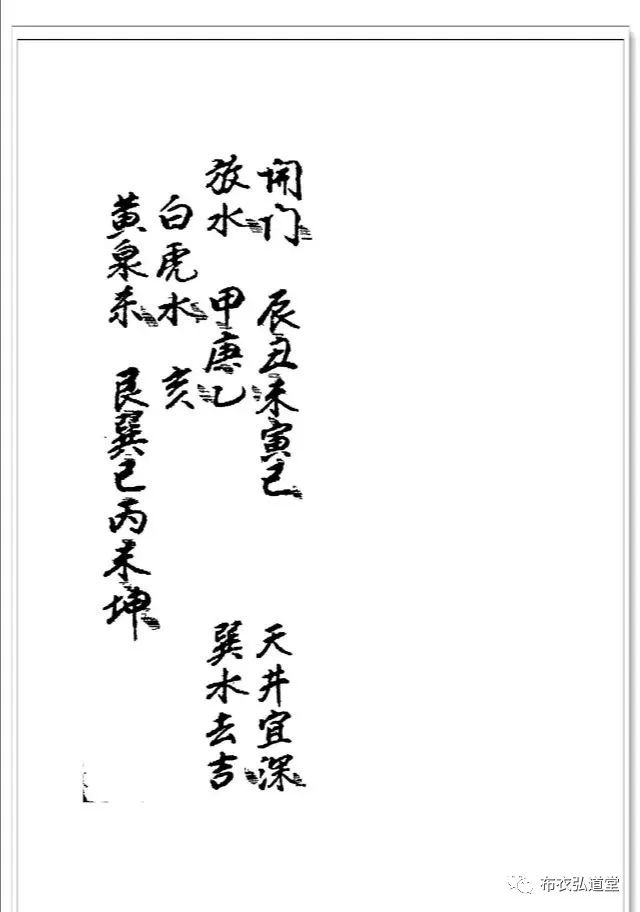 開门　辰丑未寅巳　天井宜深
放水　甲庚乙　巽水去吉
白虎水　亥
黄泉杀　艮巽巳丙未坤
布衣弘道堂